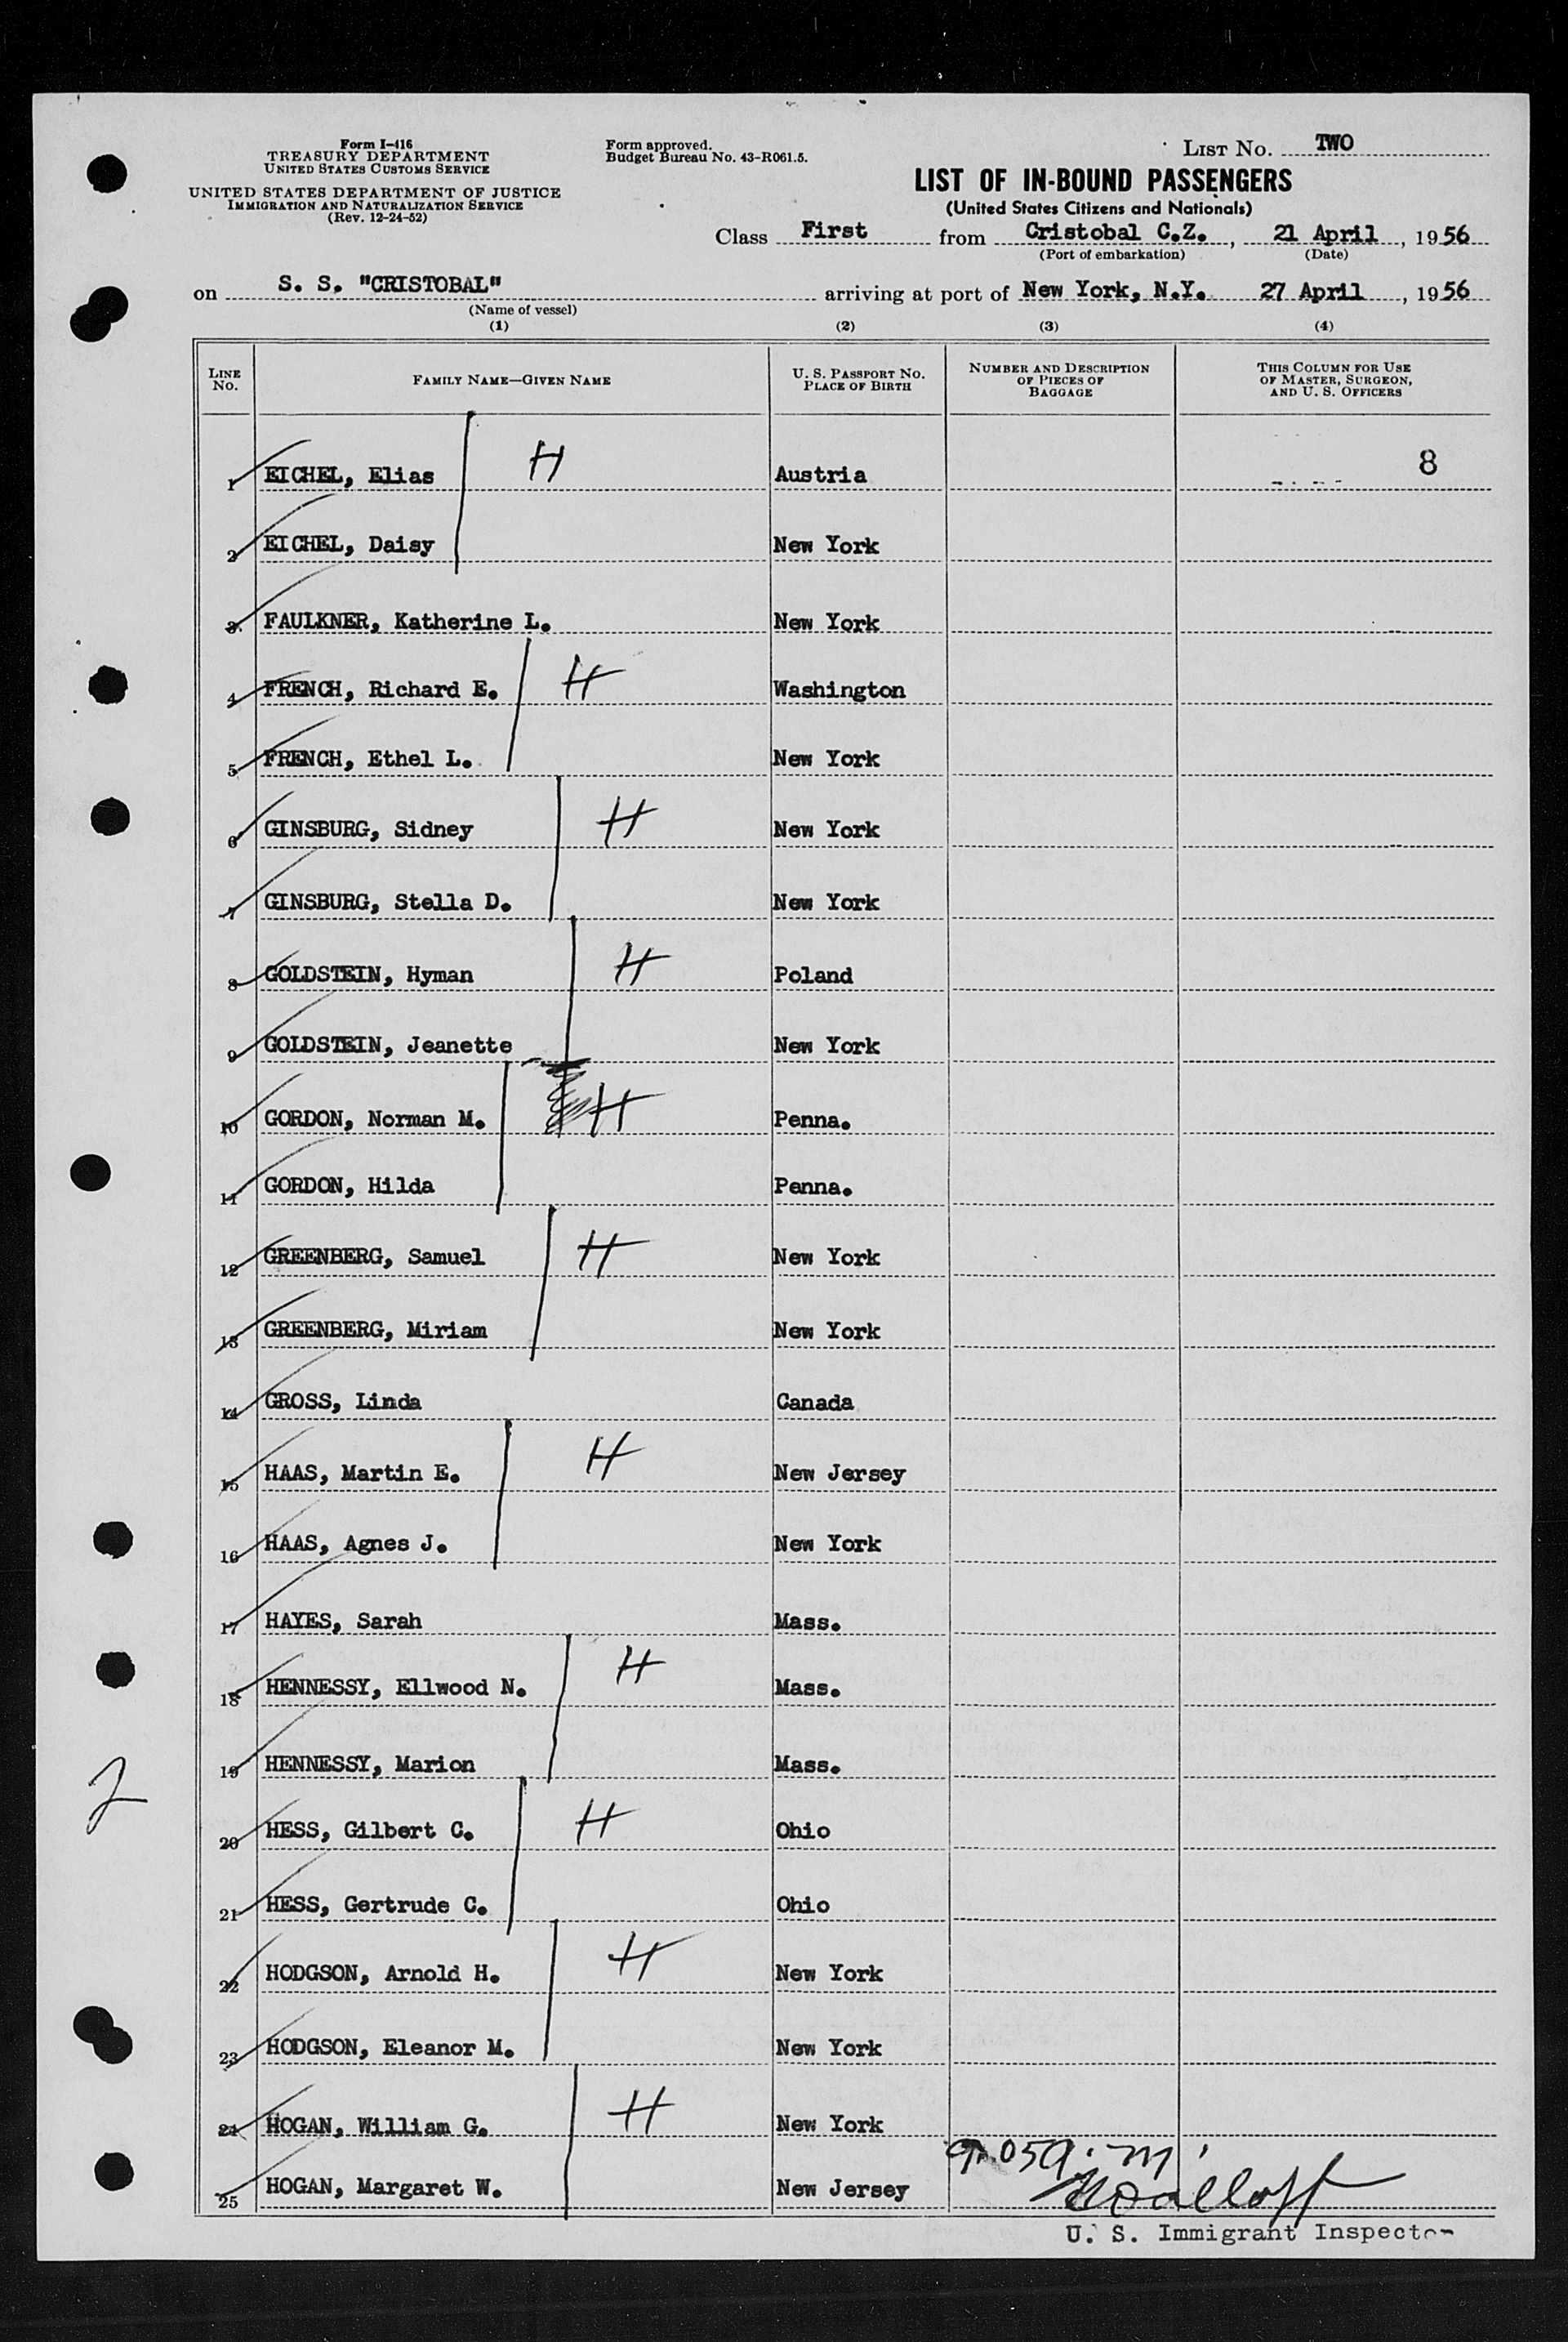 Form I-416
TREASURY DEPARTMENT
UNITED STATES CUSTOMS SERVICE
UNITED STATES DEPARTMENT OF JUSTICE
IMMIGRATION AND NATURALIZATION SERVICE
(Rev. 12-24-52)
Form approved.
Budget Bureau No. 43-R061.5.
LIST NO. TWO
LIST OF IN-BOUND PASSENGERS
(United States Citizens and Nationals)
Class First from Cristobal C.Z., 21 April, 1956
(Port of embarkation) (Date)
on S. S. "CRISTOBAL" arriving at port of New York, N.Y. 27 April, 1956
(Name of vessel)
(1) (2) (3) (4)
LINE NO. FAMILY NAME—GIVEN NAME U. S. PASSPORT NO. PLACE OF BIRTH NUMBER AND DESCRIPTION OF PIECES OF BAGGAGE THIS COLUMN FOR USE OF MASTER, SURGEON, AND U. S. OFFICERS
1 EICHEL, Elias H Austria 8
2 EICHEL, Daisy New York
3 FAULKNER, Katherine L. New York
4 FRENCH, Richard E. H Washington
5 FRENCH, Ethel L. New York
6 GINSBURG, Sidney H New York
7 GINSBURG, Stella D. New York
8 GOLDSTEIN, Hyman H Poland
9 GOLDSTEIN, Jeanette New York
10 GORDON, Norman M. H Penna.
11 GORDON, Hilda Penna.
12 GREENBERG, Samuel H New York
13 GREENBERG, Miriam New York
14 GROSS, Linda Canada
15 HAAS, Martin E. H New Jersey
16 HAAS, Agnes J. New York
17 HAYES, Sarah Mass.
18 HENNESSY, Ellwood N. H Mass.
19 HENNESSY, Marion Mass.
2
20 HESS, Gilbert C. H Ohio
21 HESS, Gertrude C. Ohio
22 HODGSON, Arnold H. H New York
23 HODGSON, Eleanor M. New York
24 HOGAN, William G. H New York
25 HOGAN, Margaret W. New Jersey
U. S. Immigrant Inspector